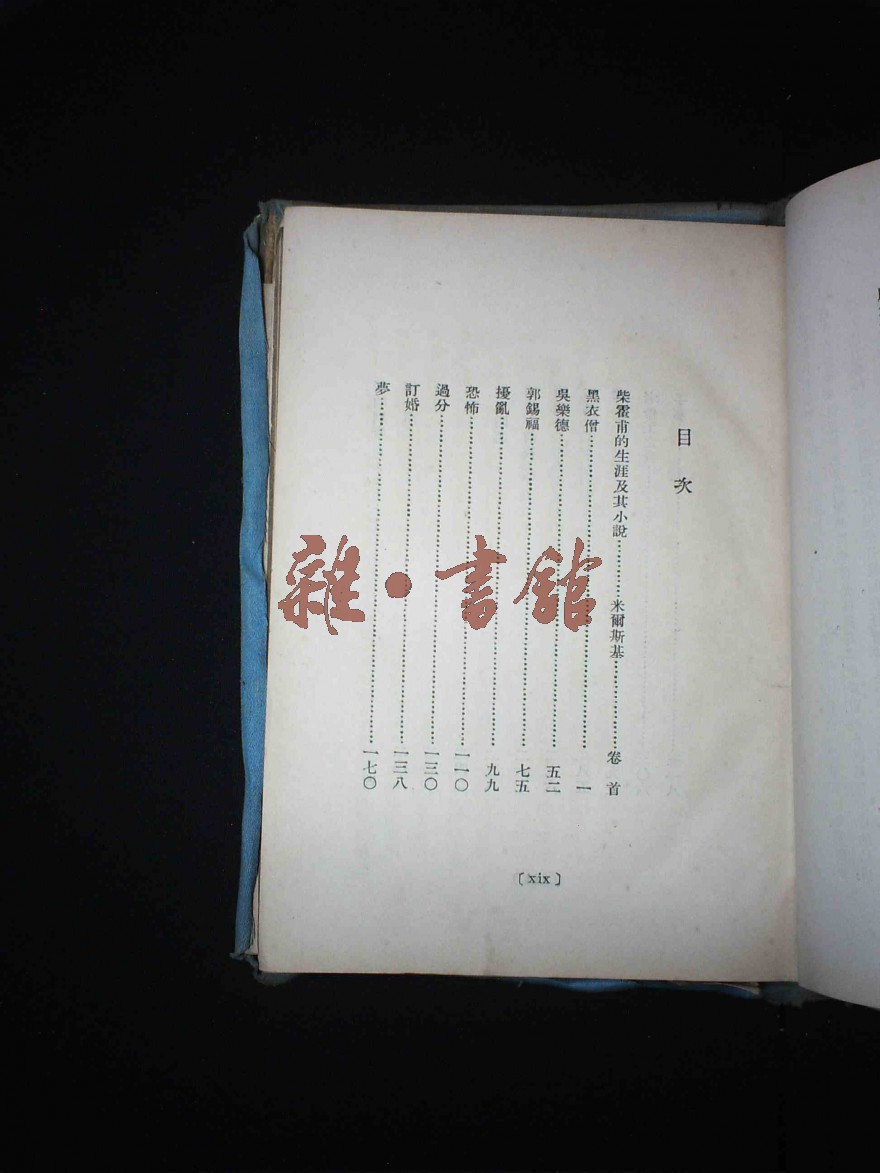 目次
柴霍甫的生涯及其小說…………米爾斯基…………卷首
黑衣僧…………一
吳樂德…………五二
郭錫福…………七五
擾亂…………九九
恐怖…………一一〇
過分…………一三〇
訂婚…………一三八
夢…………一七〇
〔xix〕
雜·書館